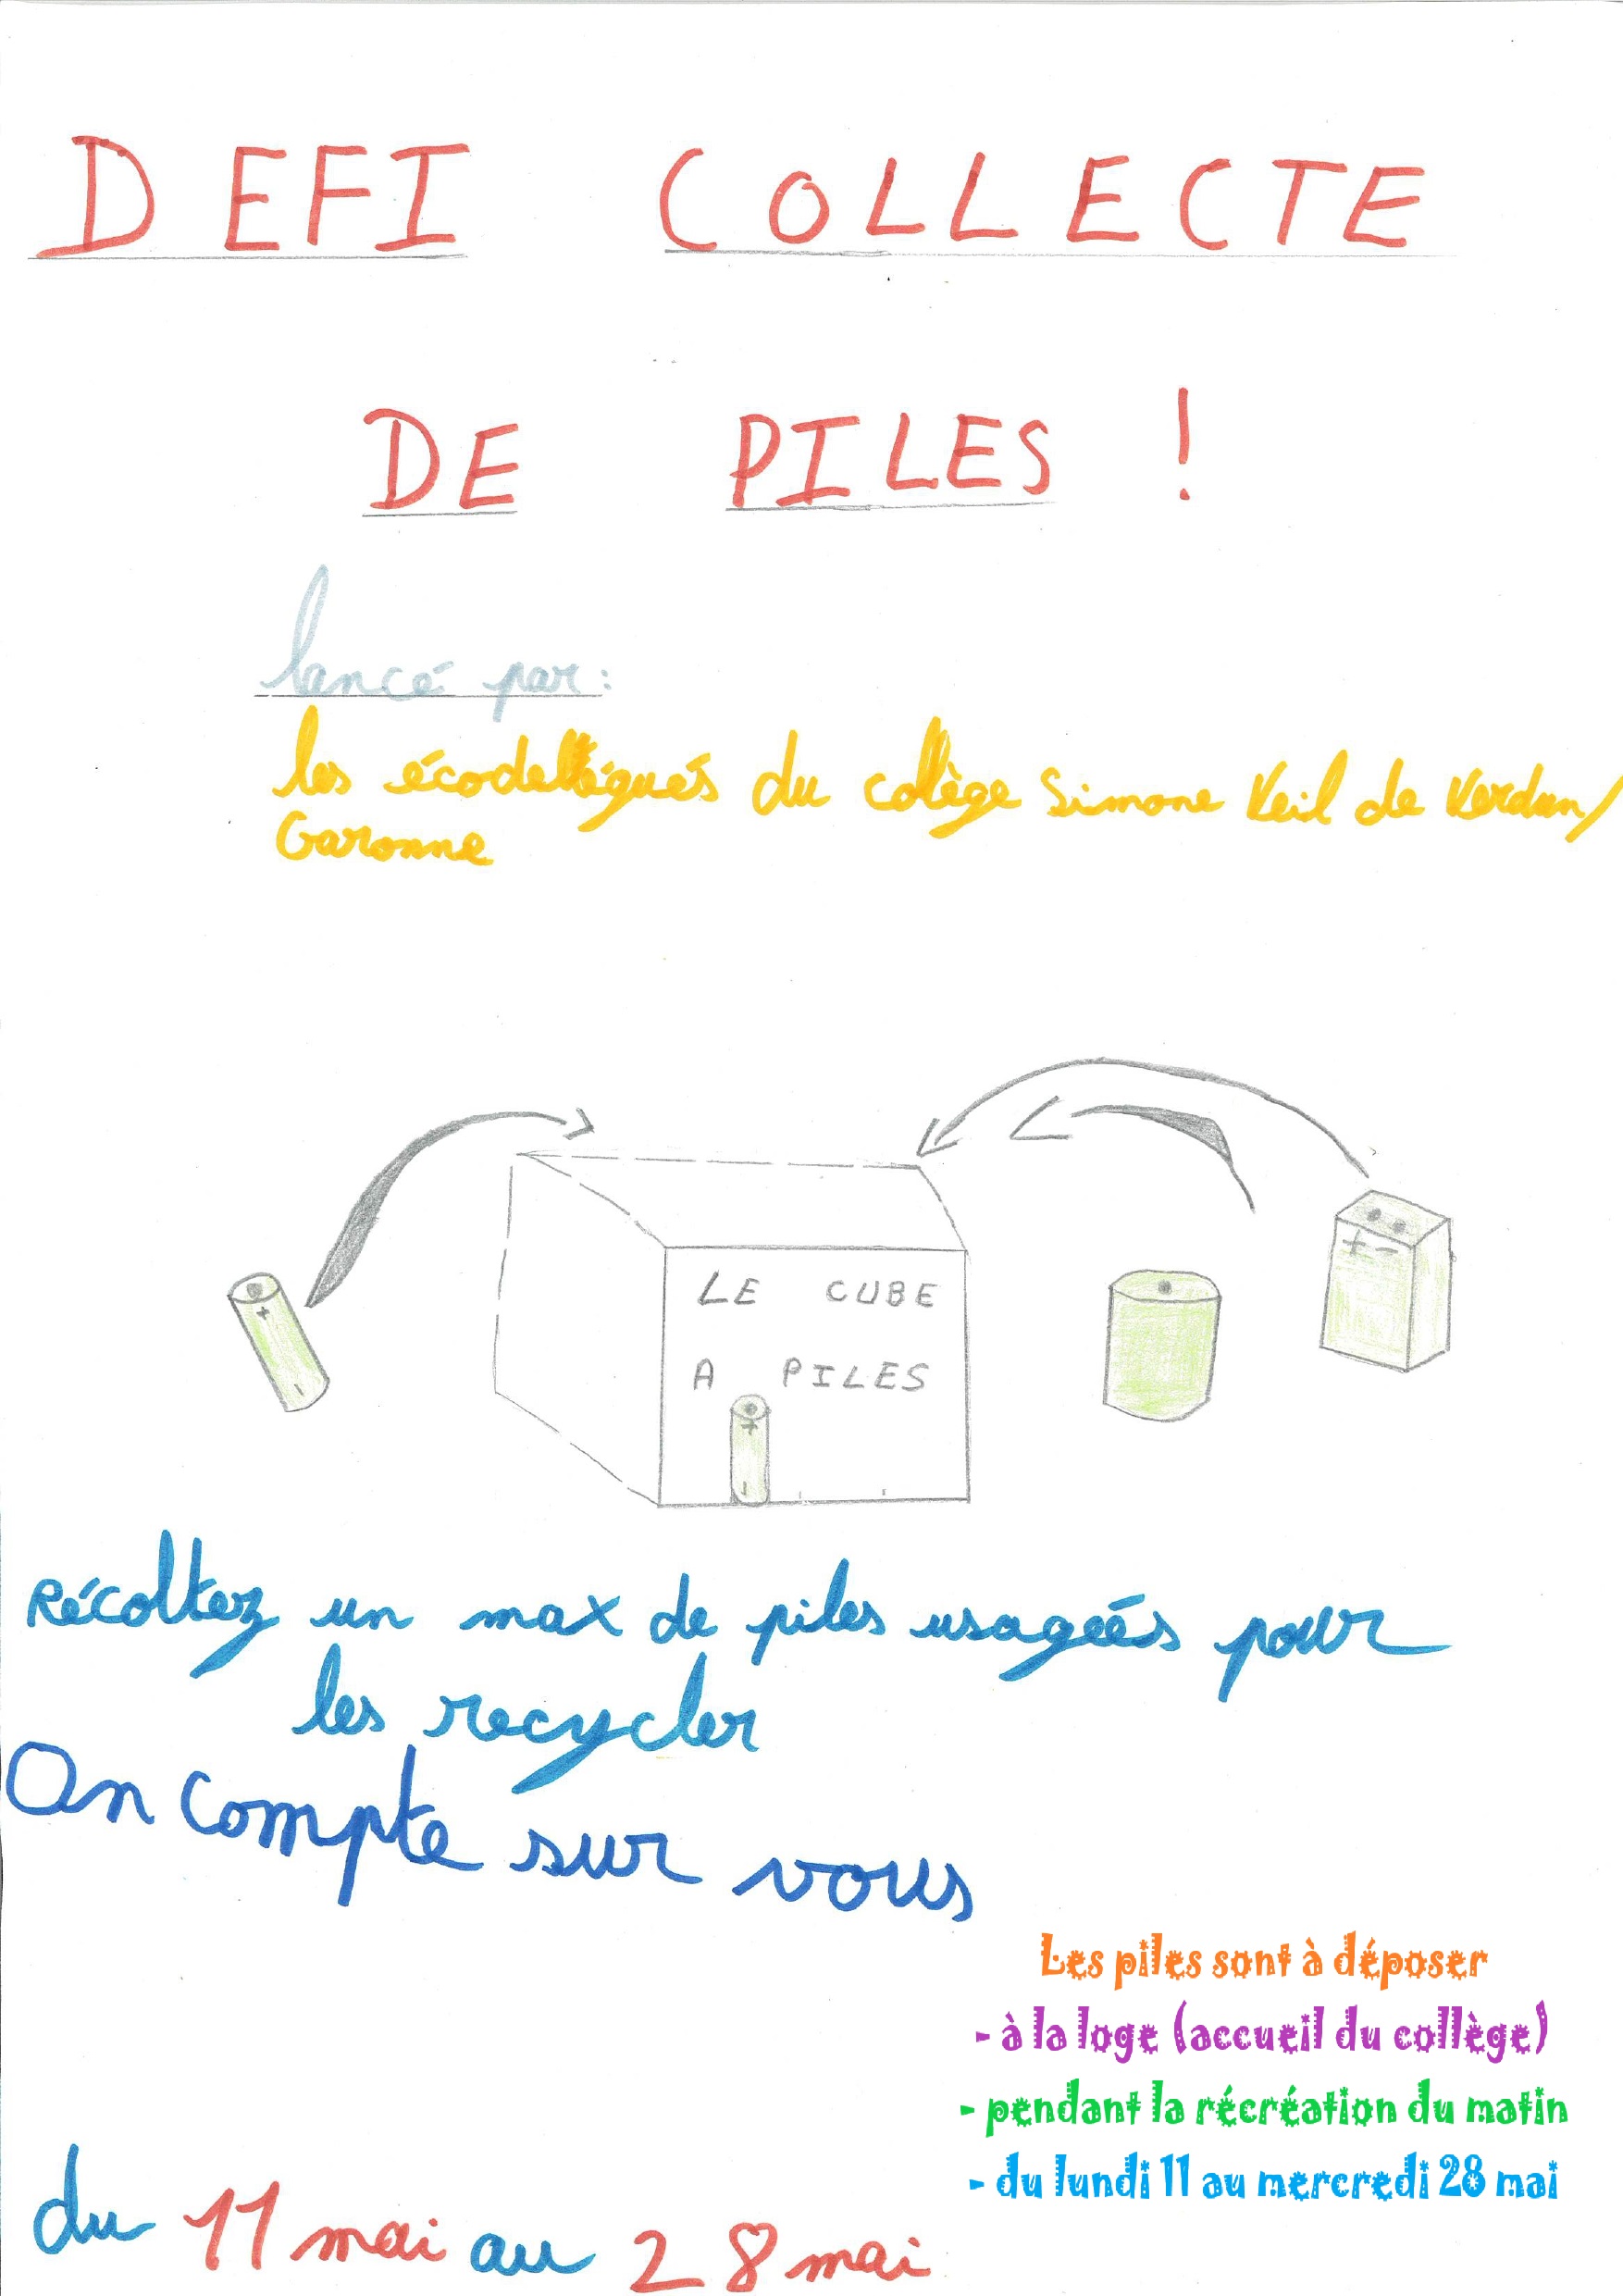 DEFI COLLECTE
DE PILES !
lancé par :
les écodelégués du collège Simone Veil de Verdun/
Garonne
LE CUBE
A PILES
+
-
+ -
+
-
Récoltez un max de piles usageés pour
les recycler
On compte sur vous
Les piles sont à déposer
- à la loge (accueil du collège)
- pendant la récréation du matin
- du lundi 11 au mercredi 28 mai
du 11 mai au 28 mai